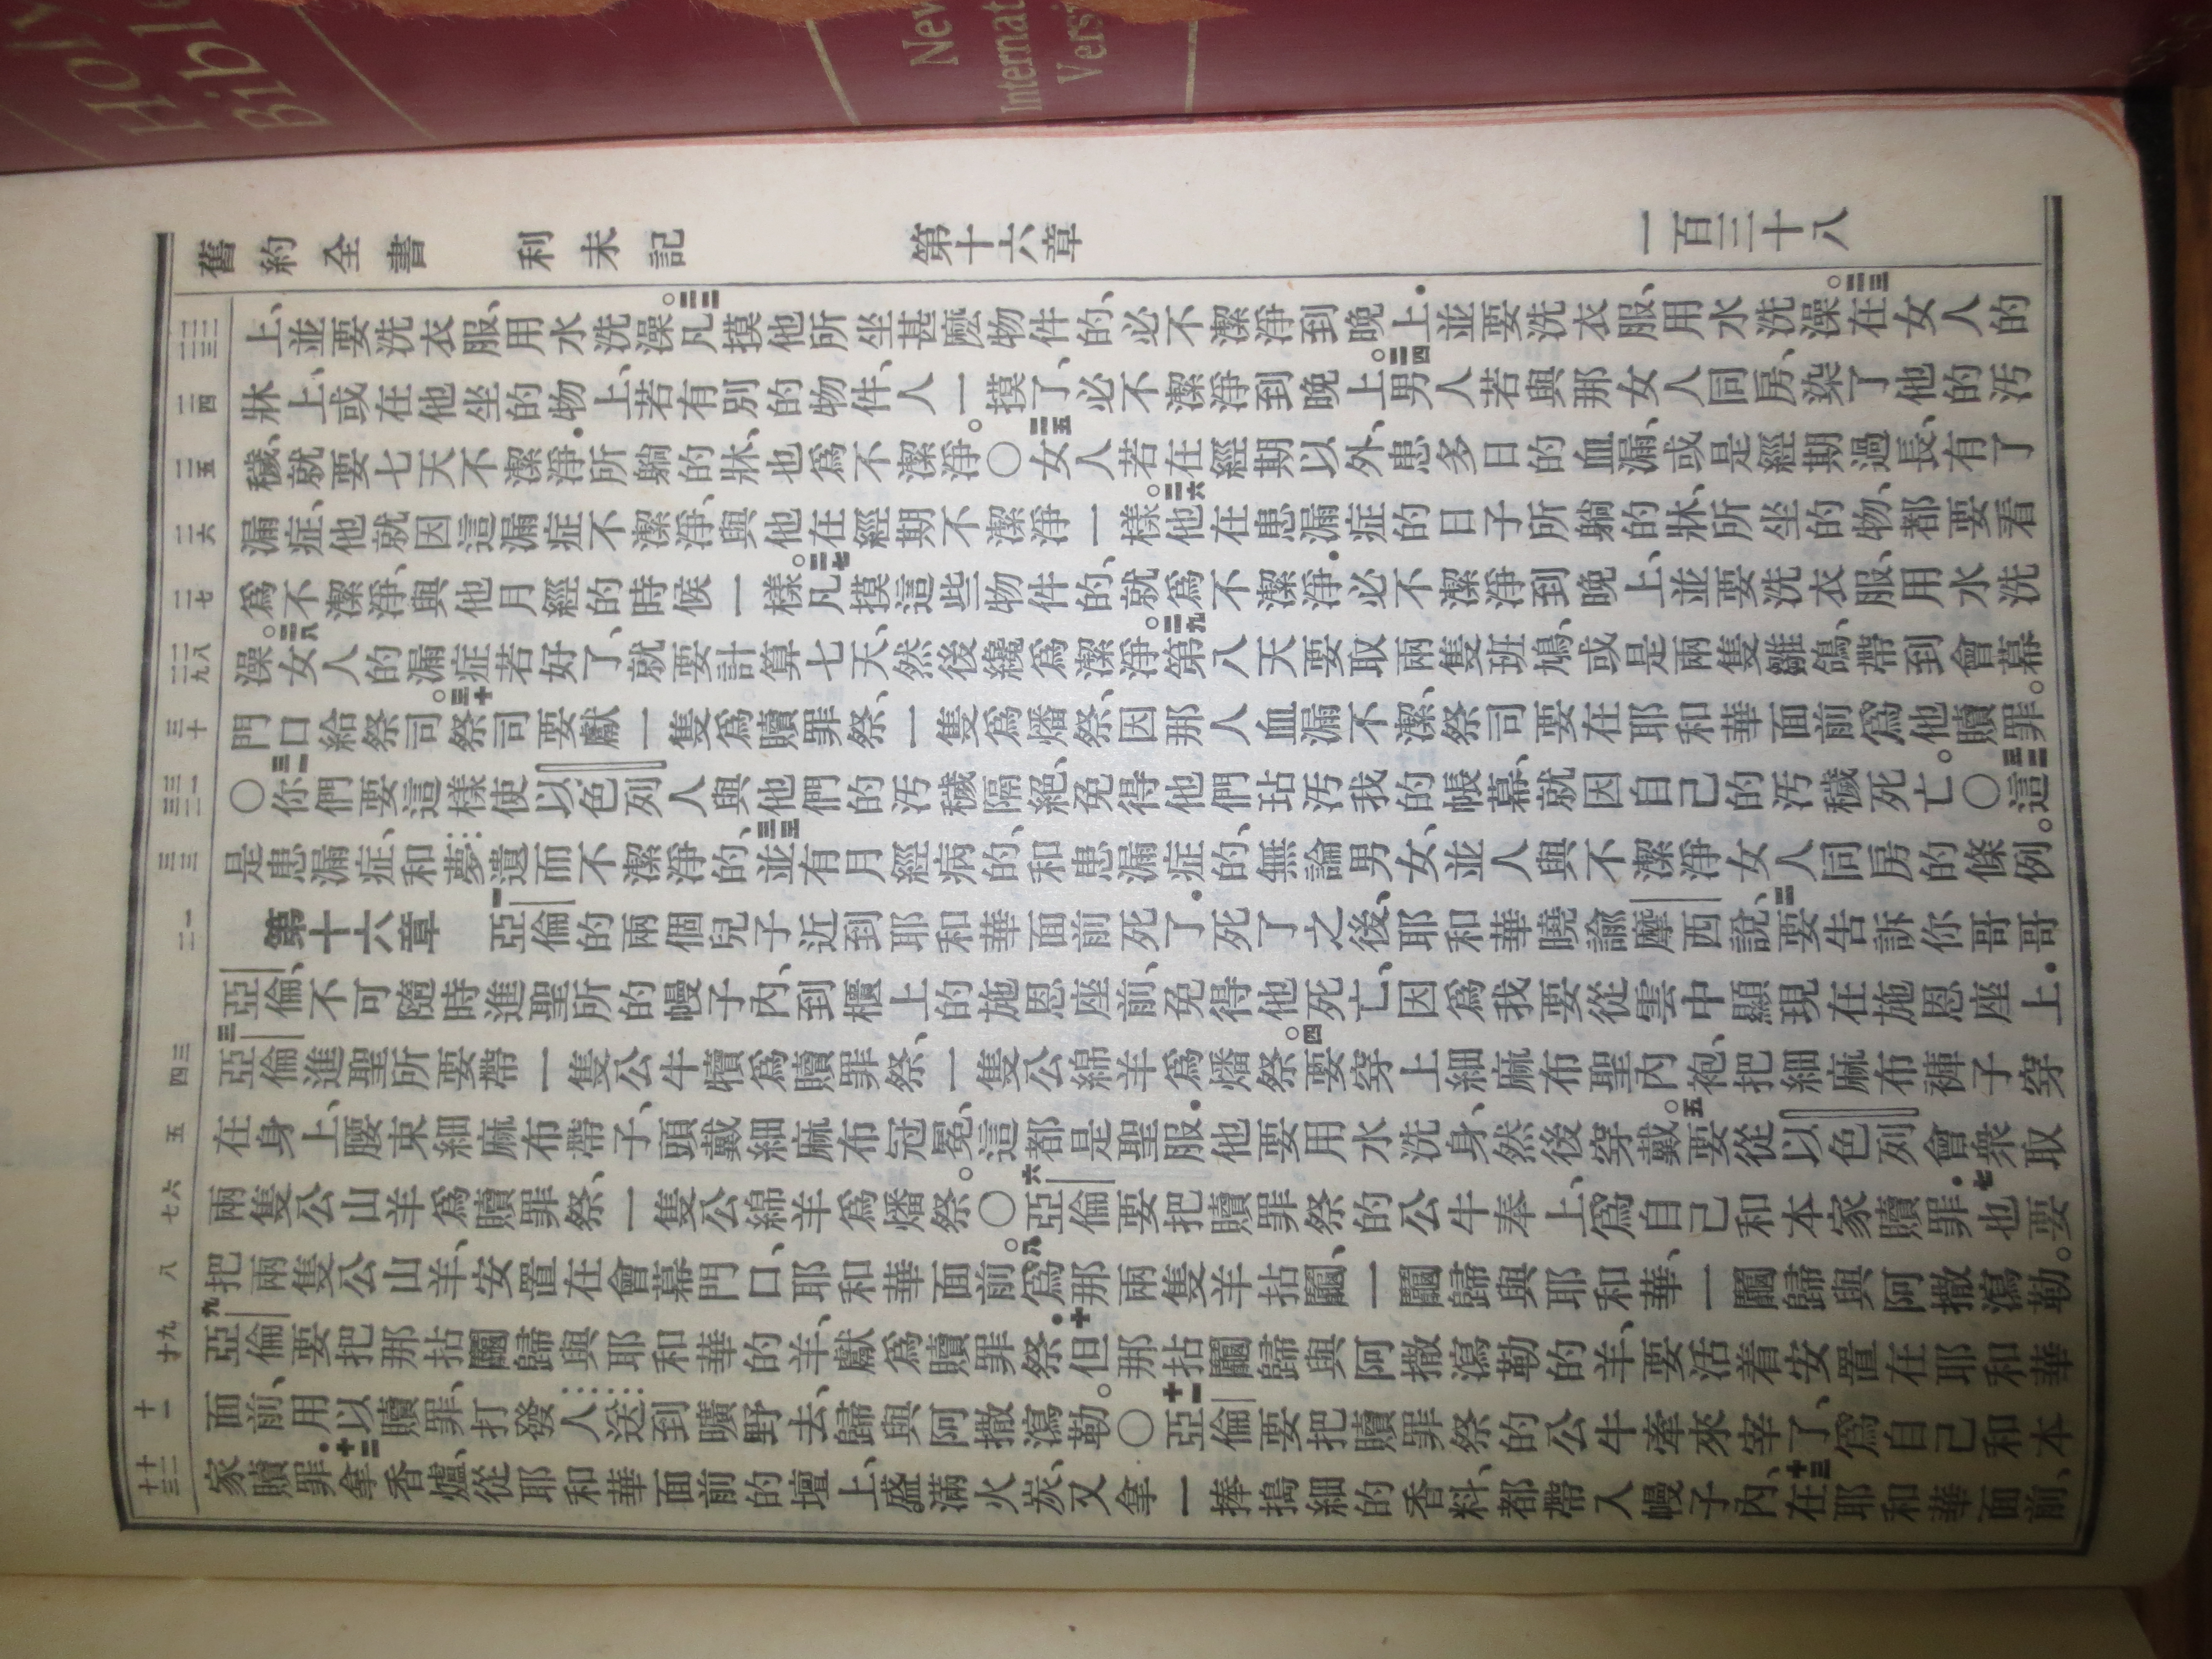 Holy
Bible
New
Internat
Versi
舊約全書 利未記 第十六章 一百三十八
二二 二三
上、並要洗衣服、用水洗澡。二二凡摸他所坐甚麼物件的、必不潔淨到晚上．並要洗衣服、用水洗澡。二三在女人的
二四
牀上、或在他坐的物上、若有別的物件、人一摸了、必不潔淨到晚上。二四男人若與那女人同房、染了他的汚
二五
穢、就要七天不潔淨．所躺的牀、也爲不潔淨。〇二五女人若在經期以外、患多日的血漏、或是經期過長、有了
二六
漏症、他就因這漏症不潔淨、與他在經期不潔淨一樣。二六他在患漏症的日子所躺的牀、所坐的物、都要看
二七
爲不潔淨、與他月經的時候一樣。二七凡摸這些物件的、就爲不潔淨．必不潔淨到晚上、並要洗衣服、用水洗
二八 二九
澡。二八女人的漏症若好了、就要計算七天、然後纔爲潔淨。二九第八天要取兩隻班鳩、或是兩隻雛鴿、帶到會幕
三十
門口給祭司。三十祭司要獻一隻爲贖罪祭、一隻爲燔祭、因那人血漏不潔、祭司要在耶和華面前爲他贖罪。
三一 三二
〇三一你們要這樣使以色列人與他們的汚穢隔絕、免得他們玷汚我的帳幕、就因自己的汚穢死亡。〇三二這
三三
是患漏症、和夢遺而不潔淨的、三三並有月經病的、和患漏症的、無論男女、並人與不潔淨女人同房的條例。
一 二
第十六章 一亞倫的兩個兒子近到耶和華面前死了．死了之後、耶和華曉諭摩西說、二要告訴你哥哥
亞倫、不可隨時進聖所的幔子內、到櫃上的施恩座前、免得他死亡、因爲我要從雲中顯現在施恩座上．
三 四
三亞倫進聖所要帶一隻公牛犢爲贖罪祭、一隻公綿羊爲燔祭。四要穿上細麻布聖內袍、把細麻布褲子穿
五
在身上、腰束細麻布帶子、頭戴細麻布冠冕、這都是聖服．他要用水洗身、然後穿戴。五要從以色列會衆取
六 七
兩隻公山羊爲贖罪祭、一隻公綿羊爲燔祭。〇六亞倫要把贖罪祭的公牛奉上、爲自己和本家贖罪．七也要
八
把兩隻公山羊、安置在會幕門口、耶和華面前。八爲那兩隻羊拈鬮、一鬮歸與耶和華、一鬮歸與阿撒瀉勒。
九 十
九亞倫要把那拈鬮歸與耶和華的羊、獻爲贖罪祭．十但那拈鬮歸與阿撒瀉勒的羊、要活着安置在耶和華
十一
面前、用以贖罪、打發人送到曠野去、歸與阿撒瀉勒。〇十一亞倫要把贖罪祭的公牛牽來宰了、爲自己和本
十二 十三
家贖罪．十二拿香爐、從耶和華面前的壇上、盛滿火炭、又拿一捧搗細的香料、都帶入幔子內、十三在耶和華面前、